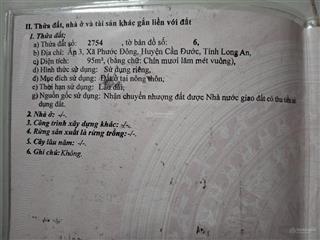 II. Thửa đất, nhà ở và tài sản khác gắn liền với đất
1. Thửa đất:
a) Thửa đất số: 2754 , tờ bản đồ số: 6,
b) Địa chỉ: Ấp 3, Xã Phước Đông, Huyện Cần Đước, Tỉnh Long An,
c) Diện tích: 95m², (bằng chữ: Chín mươi lăm mét vuông),
d) Hình thức sử dụng: Sử dụng riêng,
đ) Mục đích sử dụng: Đất ở tại nông thôn;
e) Thời hạn sử dụng: Lâu dài;
g) Nguồn gốc sử dụng: Nhận chuyển nhượng đất được Nhà nước giao đất có thu tiền sử
dụng đất.
2. Nhà ở: -/-.
3. Công trình xây dựng khác: -/-.
4. Rừng sản xuất là rừng trồng: -/-.
5. Cây lâu năm: -/-.
6. Ghi chú: Không.